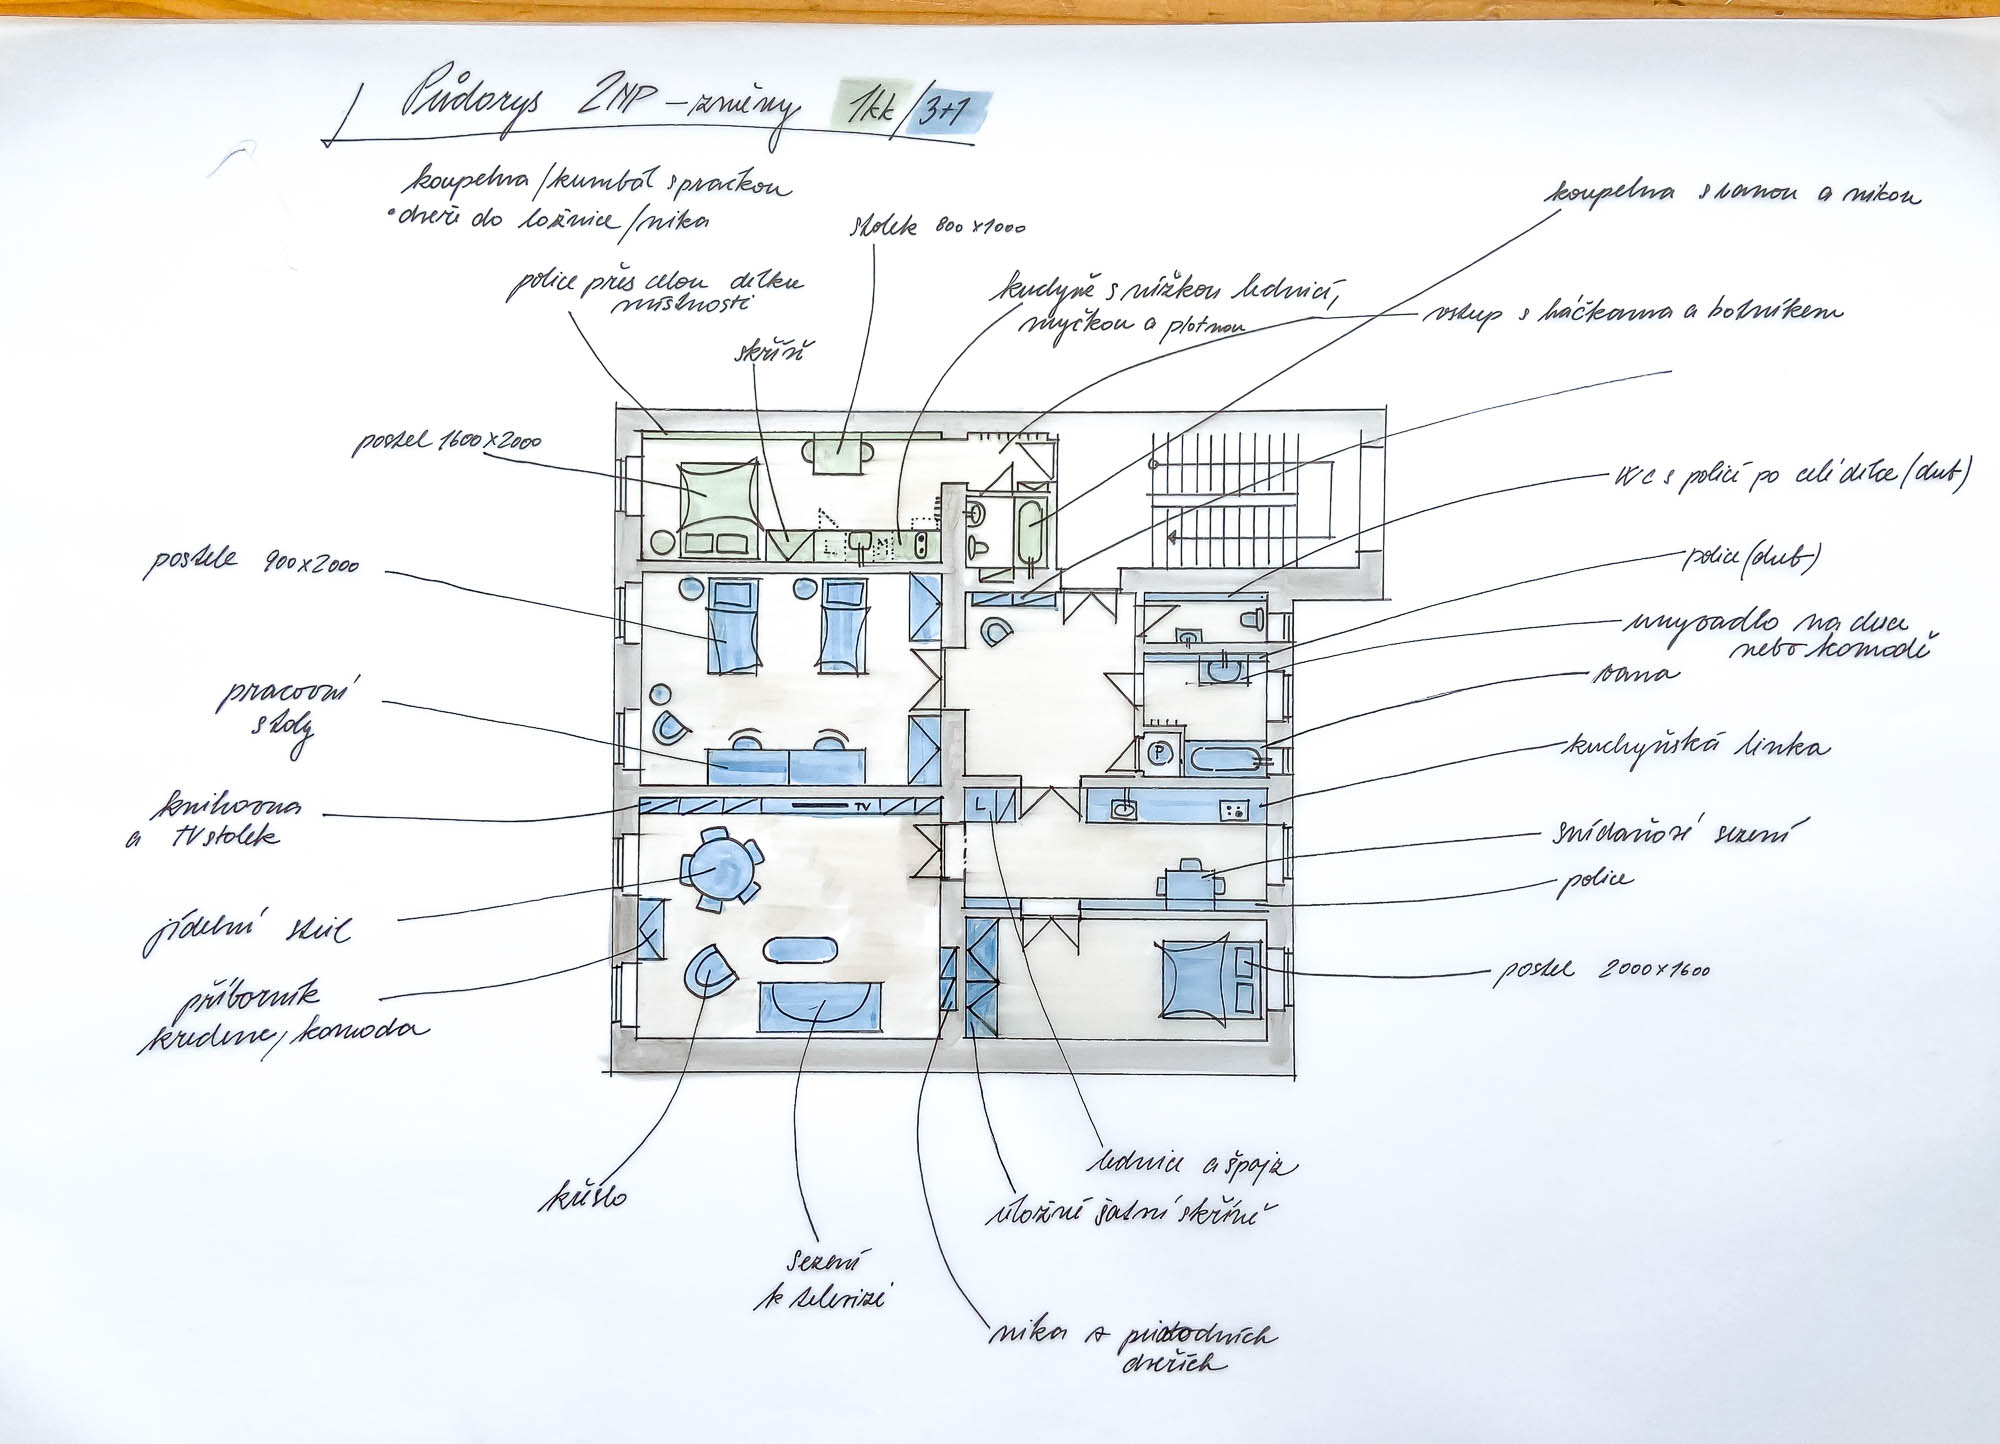 Půdorys 2NP – změny 1kk/3+1
koupelna/kumbál s pračkou
• dveře do ložnice/nika
stolek 800x1000
police přes celou délku
místnosti
skříň
kuchyně s nízkou lednicí,
myčkou a plotnou
koupelna s vanou a nikou
vstup s háčkama a botníkem
postel 1600x2000
WC s policí po celé délce (dub)
postele 900x2000
police (dub)
umyvadlo na desce
nebo komodě
vana
pracovní
stoly
kuchyňská linka
knihovna
a TV stolek
snídaňové sezení
police
jídelní stůl
postel 2000x1600
příborník
kredenc/komoda
L
M
P
TV
L
lednice a špajz
křeslo
úložné šatní skříně
sezení
k televizi
nika v
dveřích